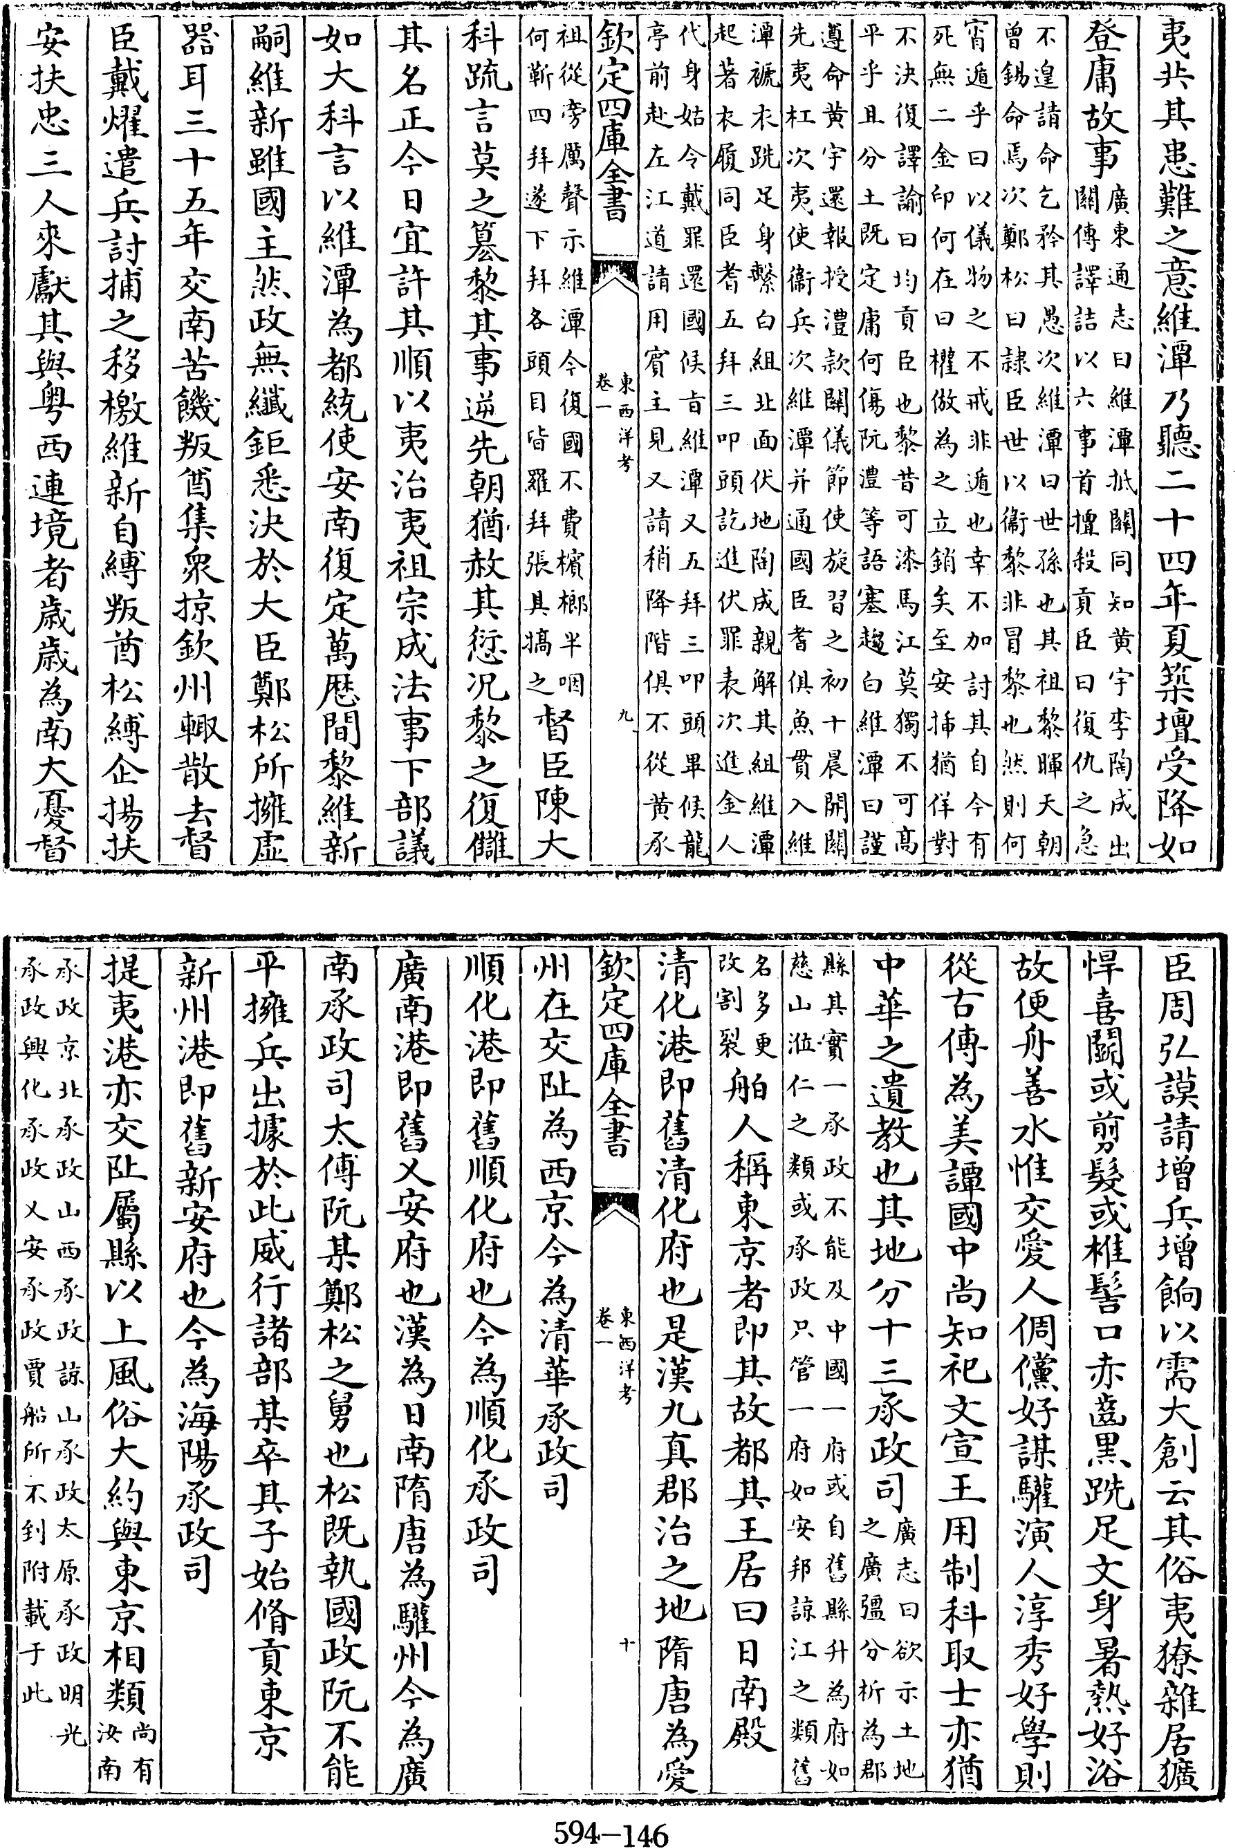 夷共其患難之意維潭乃聽二十四年夏築壇受降如
登庸故事
廣東通志曰維潭抵關同知黃宇李陶成出
關傳譯詰以六事首擅殺貢臣曰復仇之急
不遑請命乞矜其愚次維潭曰世孫也其祖黎暉天朝
曾錫命焉次鄭松曰隷臣世以衞黎非冒黎也然則何
宵遁乎曰以儀物之不戒非遁也幸不加討其自今有
死無二金印何在曰權倣為之立銷矣至安插猶佯對
不決復譯諭曰均貢臣也黎昔可漆馬江莫獨不可高
平乎且分土既定庸何傷阮澧等語塞趨白維潭曰謹
遵命黃宇還報授澧款關儀節使旋習之初十晨開關
先夷杠次夷使衞兵次維潭并通國臣耆俱魚貫入維
潭褫衣跣足身繫白組北面伏地陶成親解其組維潭
起著衣履同臣耆五拜三叩頭訖進伏罪表次進金人
代身姑令戴罪還國候旨維潭又五拜三叩頭畢候龍
亭前赴左江道請用賓主見又請稍降階俱不從黃承
欽定四庫全書
東西洋考
卷一
九
祖從旁厲聲示維潭今復國不費檳榔半咽
何靳四拜遂下拜各頭目皆羅拜張具犒之
督臣陳大
科疏言莫之簒黎其事逆先朝猶赦其愆況黎之復讎
其名正今日宜許其順以夷治夷祖宗成法事下部議
如大科言以維潭為都統使安南復定萬厯間黎維新
嗣維新雖國主然政無纖鉅悉決於大臣鄭松所擁虛
器耳三十五年交南苦饑叛酋集衆掠欽州輒散去督
臣戴燿遣兵討捕之移檄維新自縛叛酋松縛企揚扶
安扶忠三人來獻其與粤西連境者歲歲為南大憂督
臣周弘謨請增兵增餉以需大創云其俗夷獠雜居獷
悍喜鬭或剪髮或椎髻口赤齒黑跣足文身暑熱好浴
故便舟善水惟交愛人倜儻好謀驩演人淳秀好學則
從古傳為美譚國中尚知祀文宣王用制科取士亦猶
中華之遺教也其地分十三承政司
廣志曰欲示土地
之廣疆分析為郡
縣其實一承政不能及中國一府或自舊縣升為府如
慈山涖仁之類或承政只管一府如安邦諒江之類舊
名多更
改割裂
舶人稱東京者即其故都其王居曰日南殿
清化港即舊清化府也是漢九真郡治之地隋唐為愛
欽定四庫全書
東西洋考
卷一
十
州在交阯為西京今為清華承政司
順化港即舊順化府也今為順化承政司
廣南港即舊乂安府也漢為日南隋唐為驩州今為廣
南承政司太傅阮某鄭松之舅也松既執國政阮不能
平擁兵出據於此威行諸部某卒其子始脩貢東京
新州港即舊新安府也今為海陽承政司
提夷港亦交阯屬縣以上風俗大約與東京相類
尚有
汝南
承政京北承政山西承政諒山承政太原承政明光
承政興化承政乂安承政賈船所不到附載于此
594-146